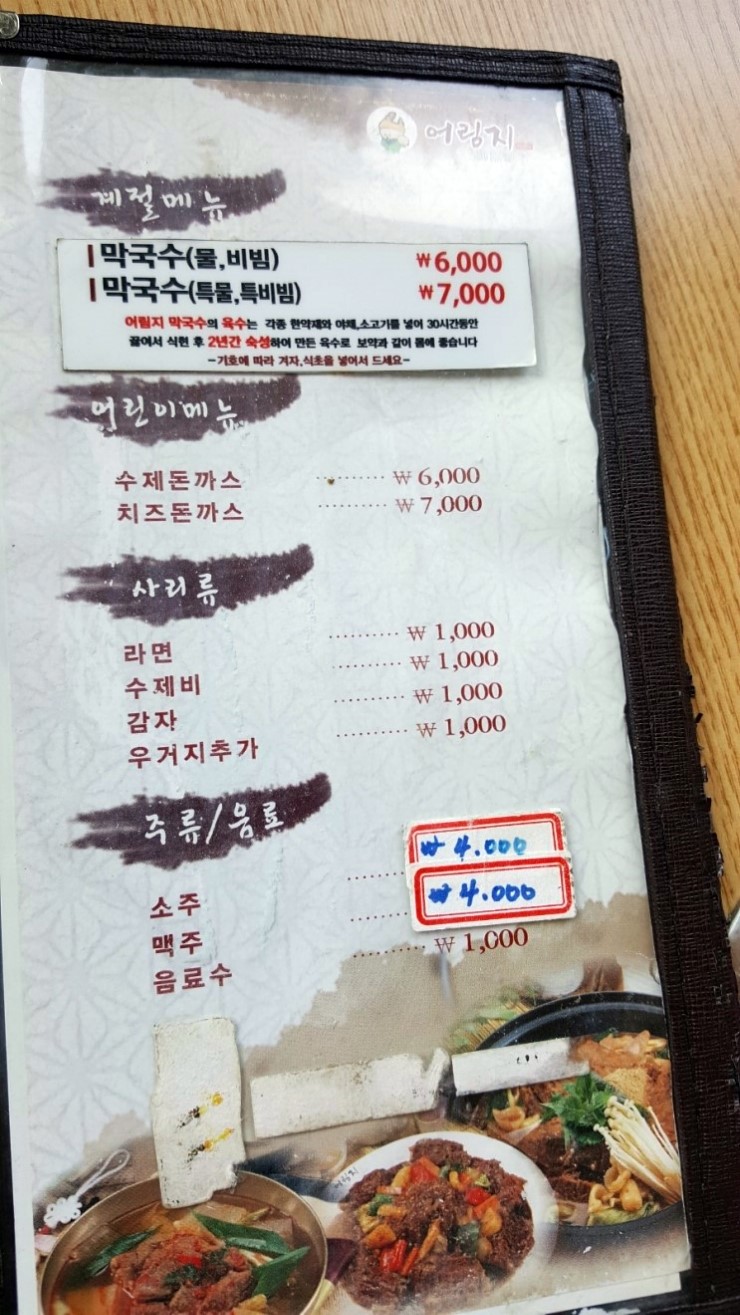 어림지
계절메뉴
막국수(물,비빔) ₩6,000
막국수(특물,특비빔) ₩7,000
어림지 막국수의 육수는 각종 한약재와 야채,소고기를 넣어 30시간동안
끓여서 식힌 후 2년간 숙성하여 만든 육수로 보약과 같이 몸에 좋습니다
-기호에 따라 겨자,식초를 넣어서 드세요-
어린이메뉴
수제돈까스 ········· ₩ 6,000
치즈돈까스 ········· ₩ 7,000
사리류
라면 ·········· ₩ 1,000
수제비 ·········· ₩ 1,000
감자 ·········· ₩ 1,000
우거지추가 ·········· ₩ 1,000
주류/음료
소주 ₩ 4.000
맥주 ₩ 4.000
음료수 ·········· ₩ 1,000